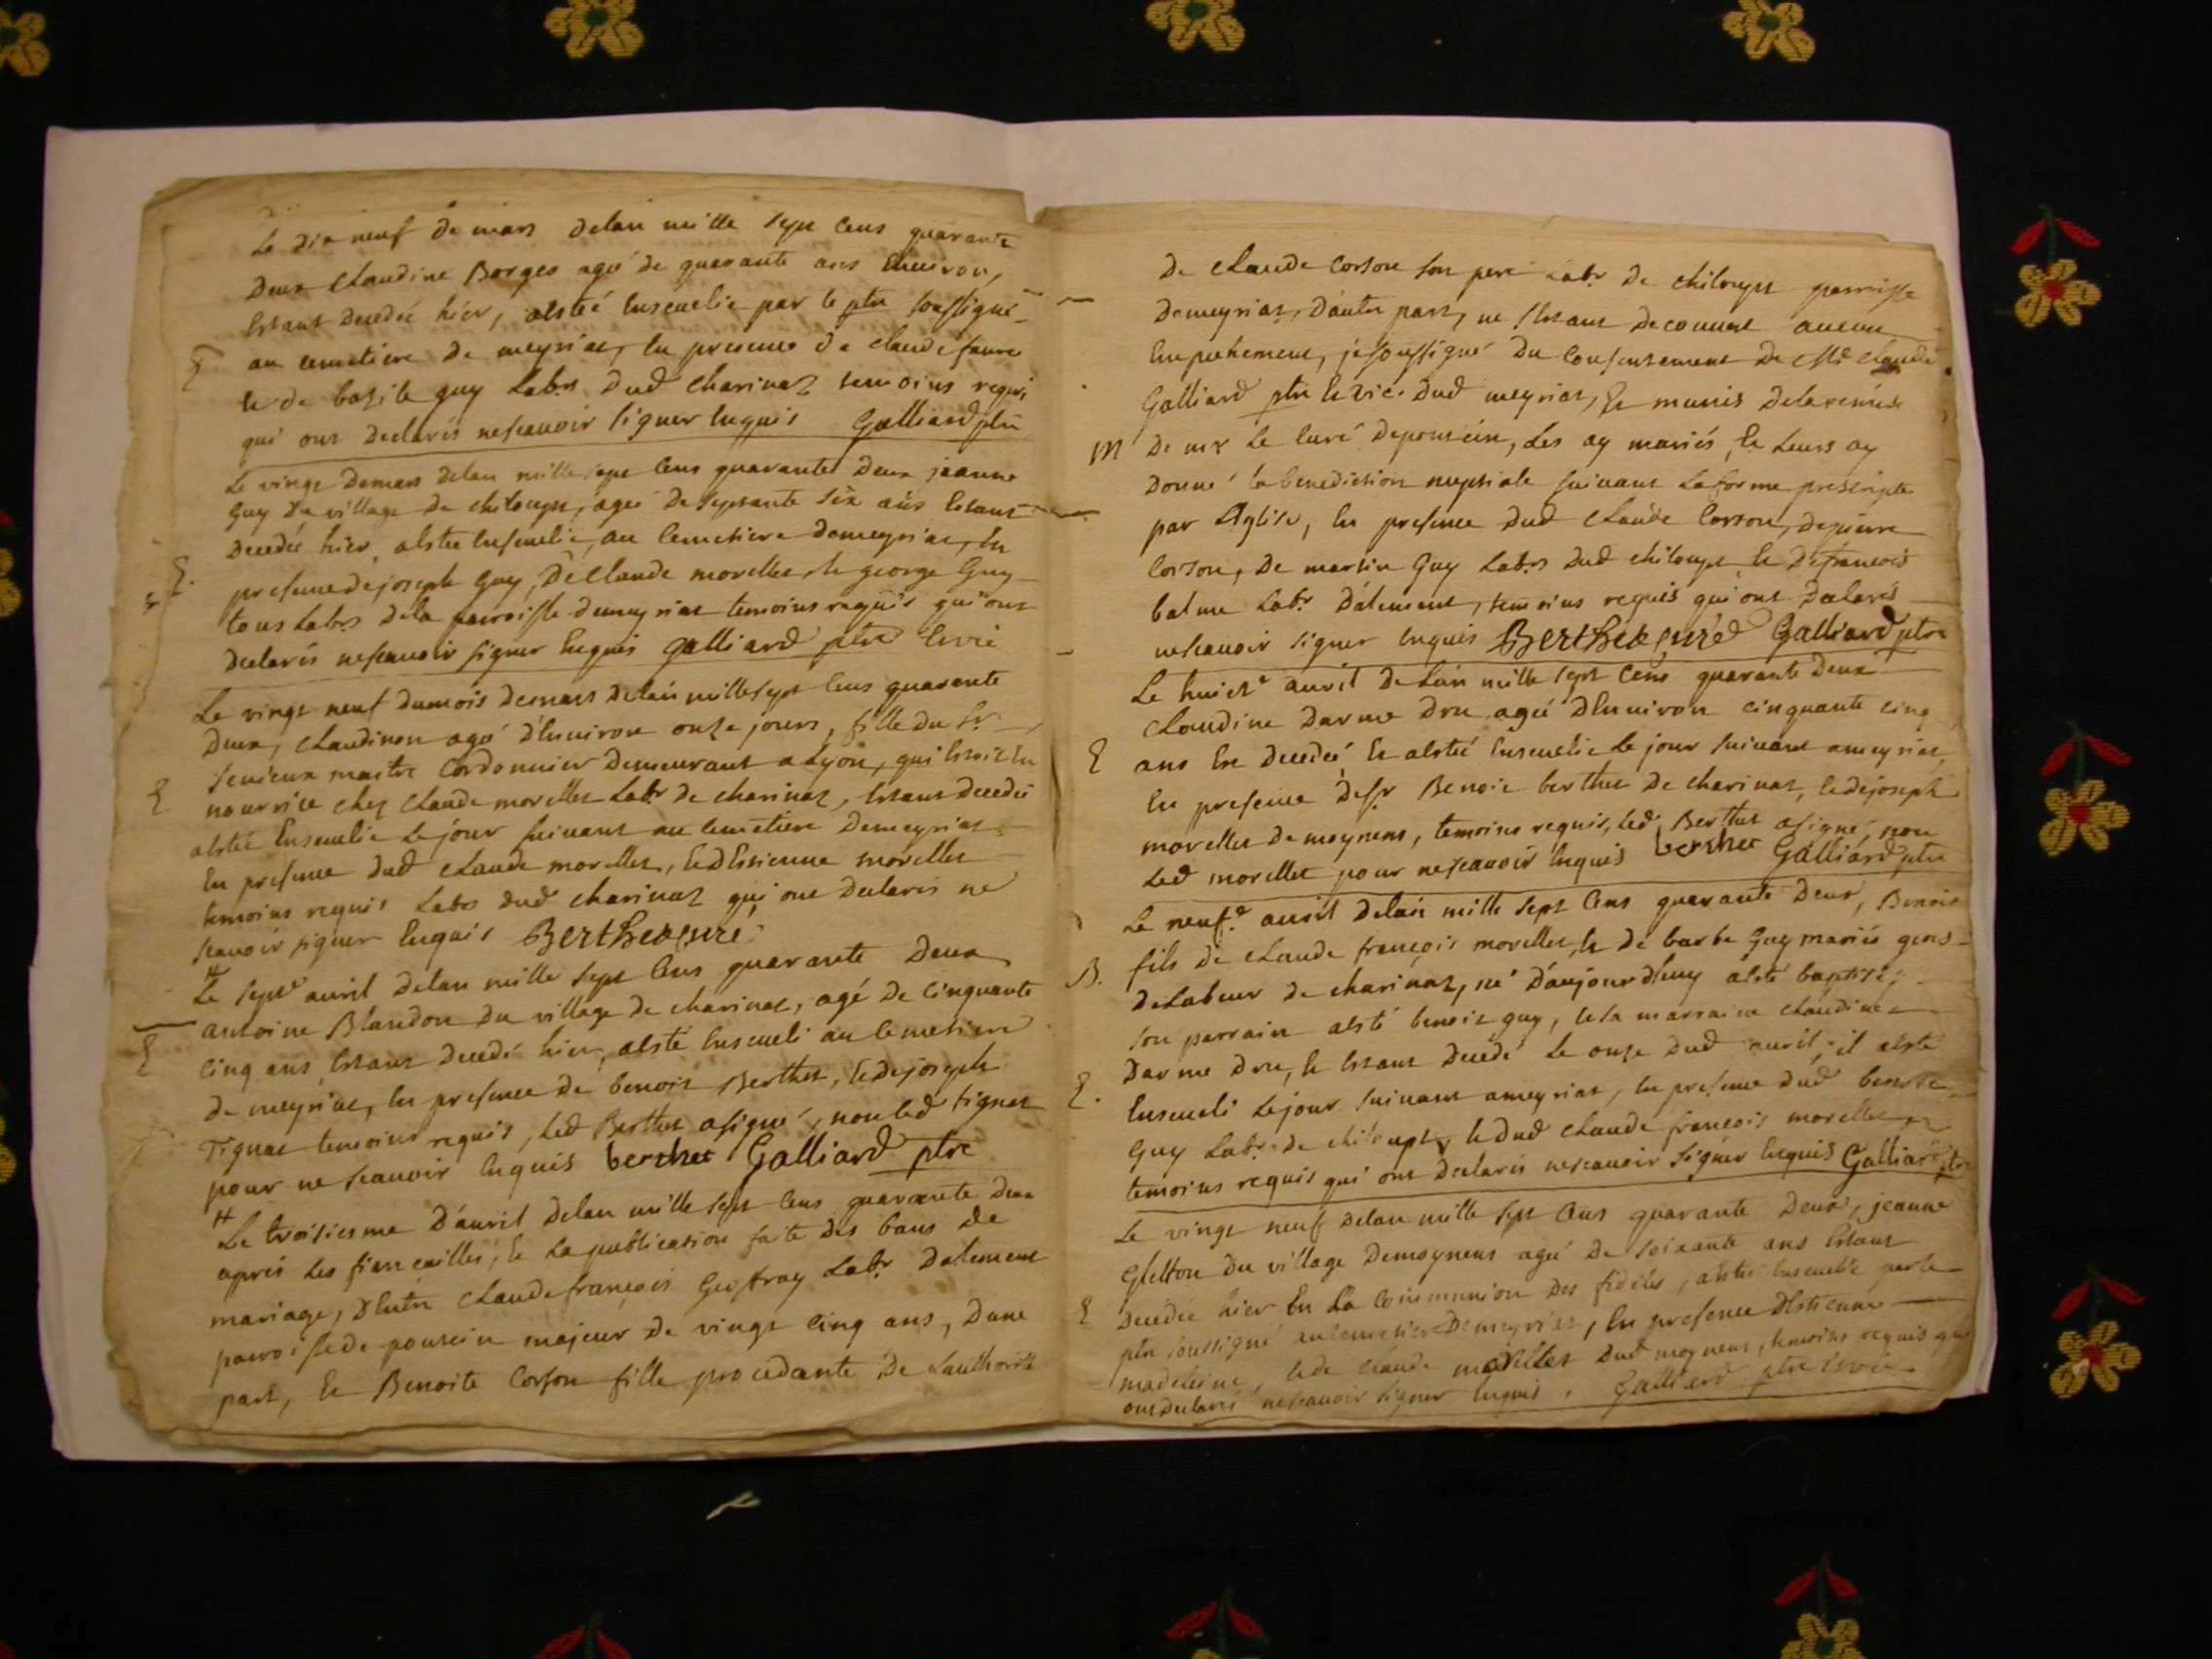 Le dix neuf de mars delan mille sept cens quarante
deux Claudine Borges agé de quarante ans Environ,
Estant decedeé hier, aesteé Enseuelie par le ptre soussigné
E au cemetiere de meyriat, En presence de claude faure
et de basile guy Labrs dud charinaz temoins requis
qui ont declarés nescauoir signer Enquis Galliard ptre
Le vingt demars delan mille sept cens quarante deux jeanne
Guy du village de chiloupt, ageé de septante six ans Estant
decedeé hier aestee Enseuelie, au Cemetiere demeyriat, En
E. presence de joseph Guy, de Claude morellet, et george Guy
tous Labrs dela parroisse demeyriat temoins requis qui ont
declarés nescauoir signer Enquis Galliard ptre
Le vingt neuf dumois demars delan mille sept cens quarente
deux, Claudinon agé d'Enuiron onze jours, fille du Sr
maitre Cordonnier demeurant a Lyon, qui Estoit En
E nourrice chez Claude morellet Labr de charinaz, Estant decedeé
aesteé Enseuelie Le jour suiuant au cemetiere demeyriat
En presence dud Claude morellet, et dEstienne morellet
temoins requis Labrs dud charinaz qui ont declarés ne
scauoir signer Enquis Berthet curé
Le septe auril delan mille sept cens quarante deux
antoine Blandon du village de charinaz, agé de cinquante
E cinq ans Estant decedé hier, aesté Enseueli au Cemetiere
de meyriat, En presence de benoit Berthet, et de joseph
Tignat temoins requis, Led Berthet asigné, non led Tignat
pour ne scauoir Enquis berthet Galliard ptre
Le troisiesme d'auril delan mille sept cens quarante deux
aprés Les fiancailles, et La publication faite des bans de
mariage, dEntre Claude françois Geoffray Labr dalement
parroisse de poncin majeur de vingt cinq ans, dune
part, Et Benoite Corson fille procedante de Lauthorité
de Claude Corson son pere Labr de chiloupt parroisse
demeyriat, dautre part, ne sEstant decouuert aucun
Empechement, je soussigné du Consentement de Mre Claude
Galliard ptre et vice dud meyriat, Et munis delaremise
M de mr Le Curé deponcin, Les ay mariés, Et Leurs ay
donné la benediction nuptiale suiuant Laforme prescripte
par LEglise, En presence dud Claude Corson, depierre
Corson, de martin Guy Labrs dud chiloupt et de francois
balme Labr dalement, temoins requis qui ont declarés
nescauoir signer Enquis Berthet curé Galliard ptre
Le huicte auril de Lan mille sept cens quarante deux
Claudine Darme dru, ageé dEnuiron cinquante cinq
E ans Est decedeé, Et aesteé Enseuelie Le jour suiuant ameyriat,
En presence de sr Benoit berthet de charinaz, et de joseph
morellet de moynens, temoins requis, Led Berthet asigné, non
Led morellet pour nescauoir Enquis berthet Galliard ptre
Le neufe auril delan mille sept cens quarante deux, Benoit
B. fils de Claude françois morellet, et de barbe Guy mariés gens
deLabeur de charinaz, né d'aujourdhuy aesté baptisé,
son parrain aesté benoit guy, et sa marraine claudine
Darme dru, et Estant decedé Le onze dud auril, il aesté
E. Enseueli Lejour suiuant ameyriat, En presence dud benoit
Guy Labr de chiloupt, et dud Claude francois morellet
temoins requis qui ont declarés nescauoir signer Enquis Galliard ptre
Le vingt neuf delan mille sept cens quarante deux, jeanne
Gletton du village demoynens ageé de soixante ans Estant
E decedeé hier En La Communion des fideles, aesteé Enseuelie parle
ptre soussigné au cemetier demeyriat, En presence dEstienne
madeleine, et de Claude morellet dud moynens, temoins requis qui
ont declarés nescauoir signer Enquis. Galliard ptre